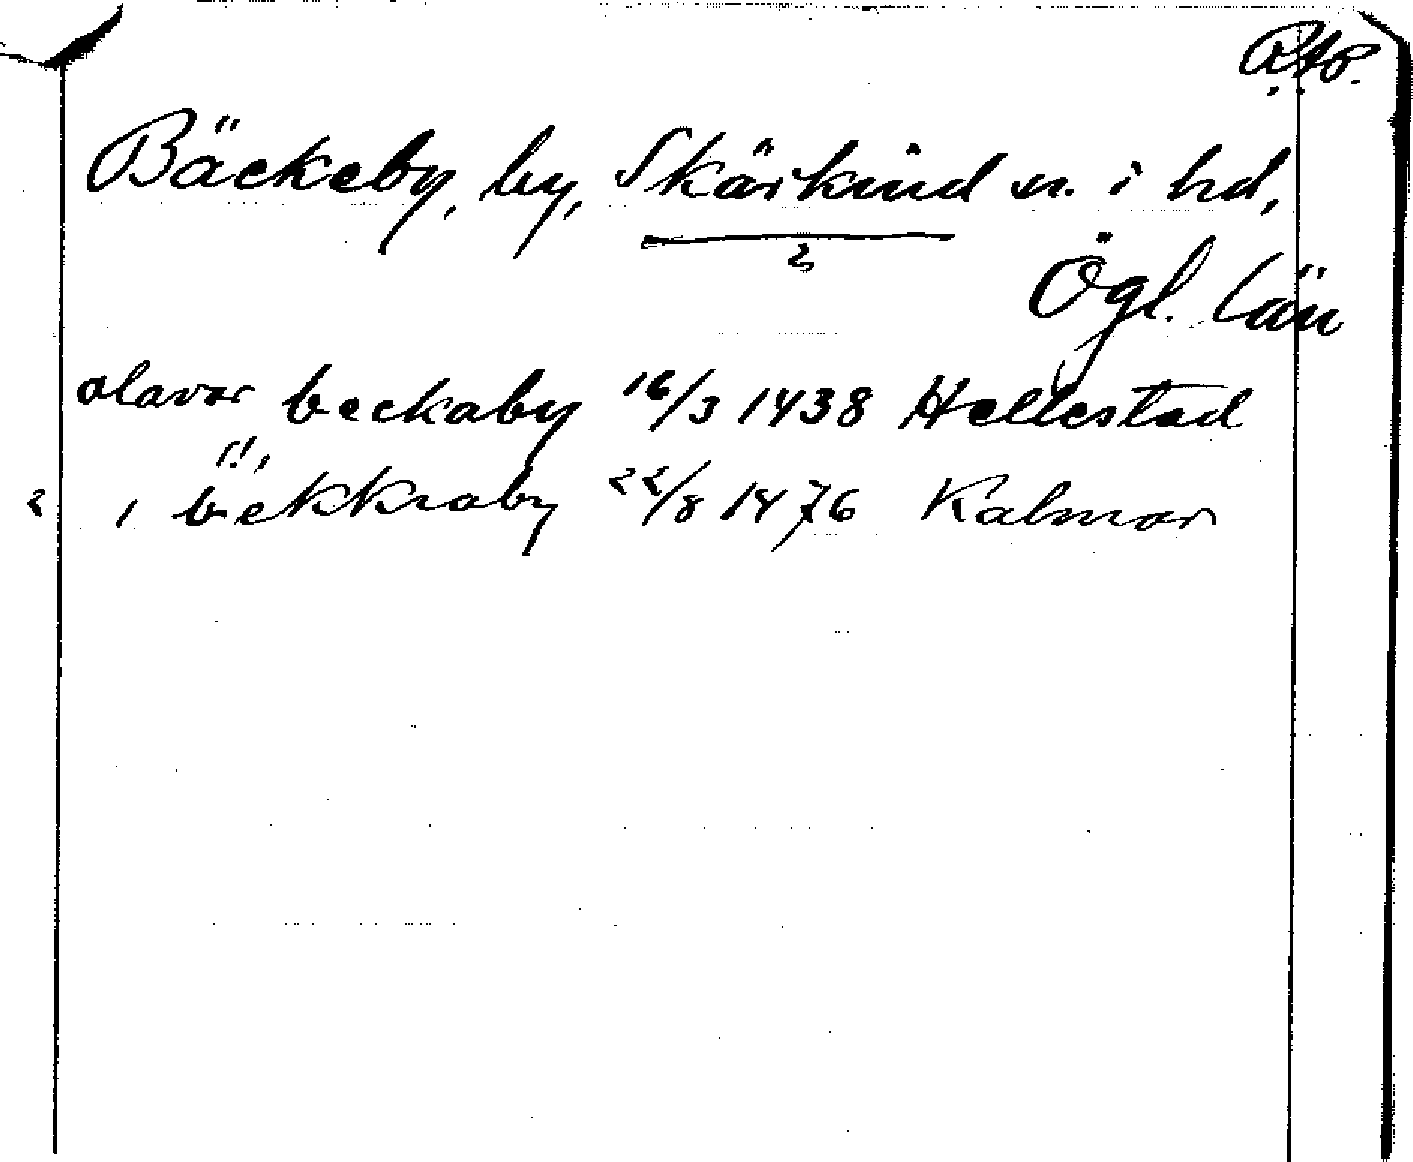 RAp.
Bäckeby, by, Skärkind sn. i hd,
2
Ögl. län
olavar beckaby 16/3 1438 Hellestad
(!),
2 i bekkraby 22/8 1476 Kalmar